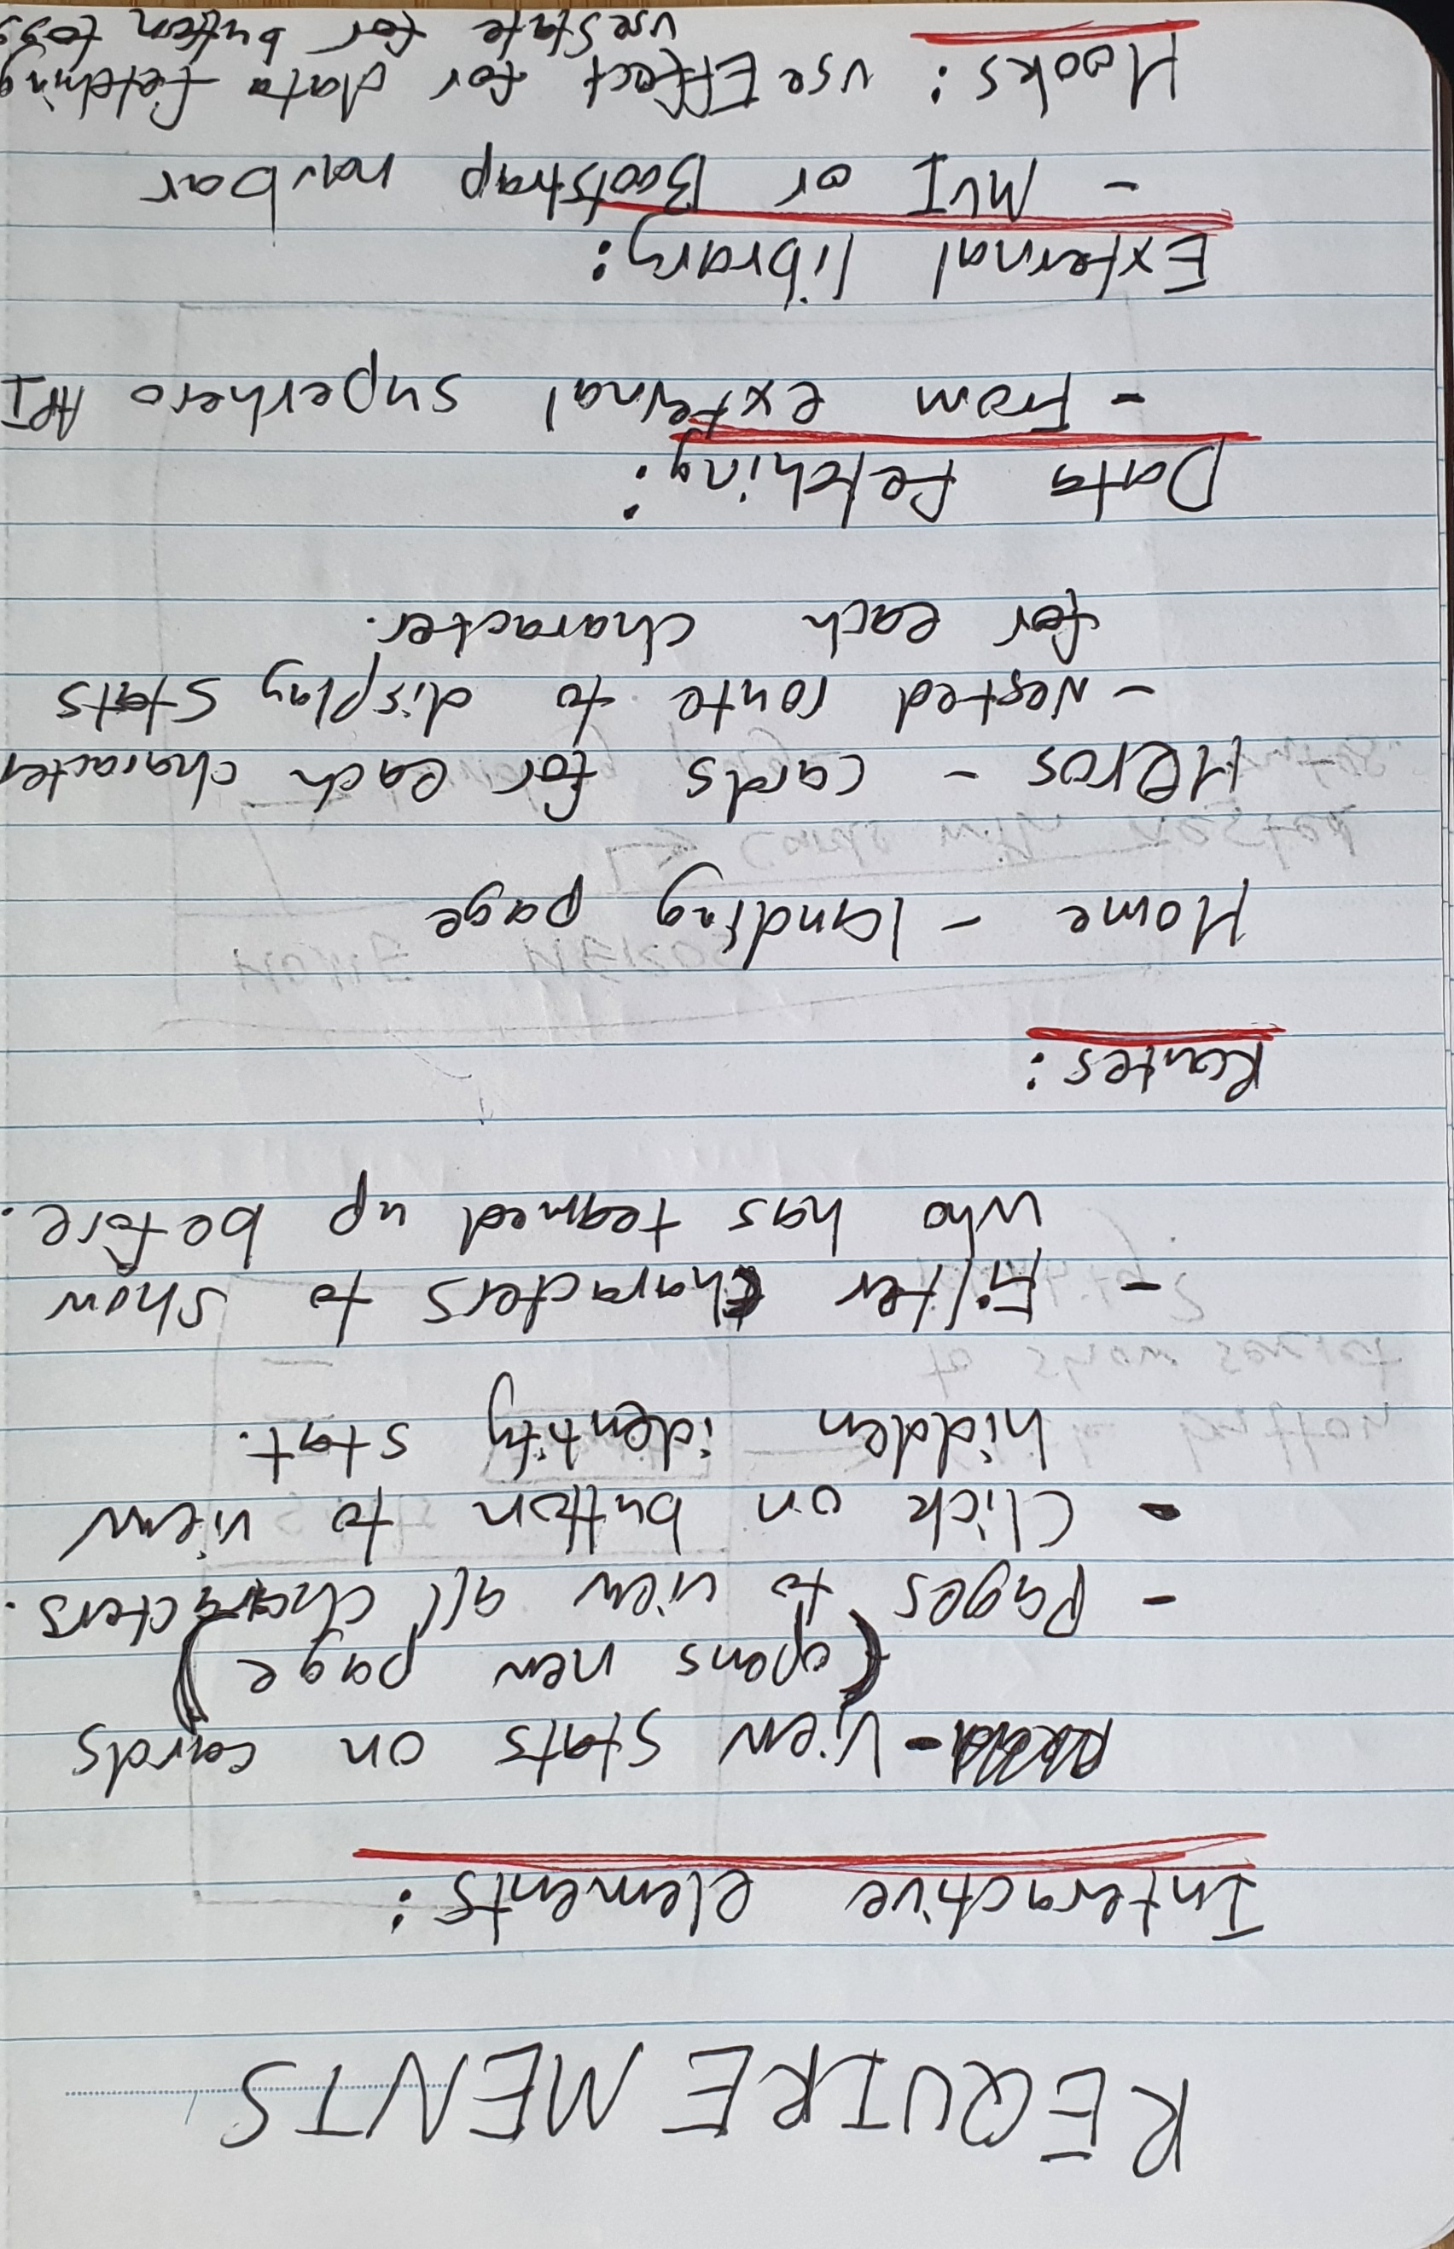 REQUIREMENTS
Interactive elements:
- View stats on cards
(opens new page)
- Pages to view all characters.
- Click on button to view
hidden identity stat.
- Filter characters to show
who has teamed up before.
Routes:
Home - landing page
Heros - cards for each character
- Nested route to display stats
for each character.
Data fetching:
- From external superhero API
External library:
- MUI or Bootstrap navbar
Hooks: useEffect for data fetching
useState for button